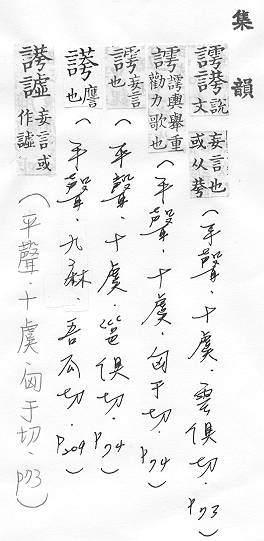 集韻
謣 說文妄言也或从荂(平聲.十虞.雲俱切.P73)
謣 謣輿舉重勸力歌也(平聲.十虞.匈于切.P74)
謣 妄言也(平聲.十虞.邕俱切.P74)
譍也(平聲.九麻.吾瓜切.P209)
譃 妄言或作譃(平聲.十虞.匈于切.P73)